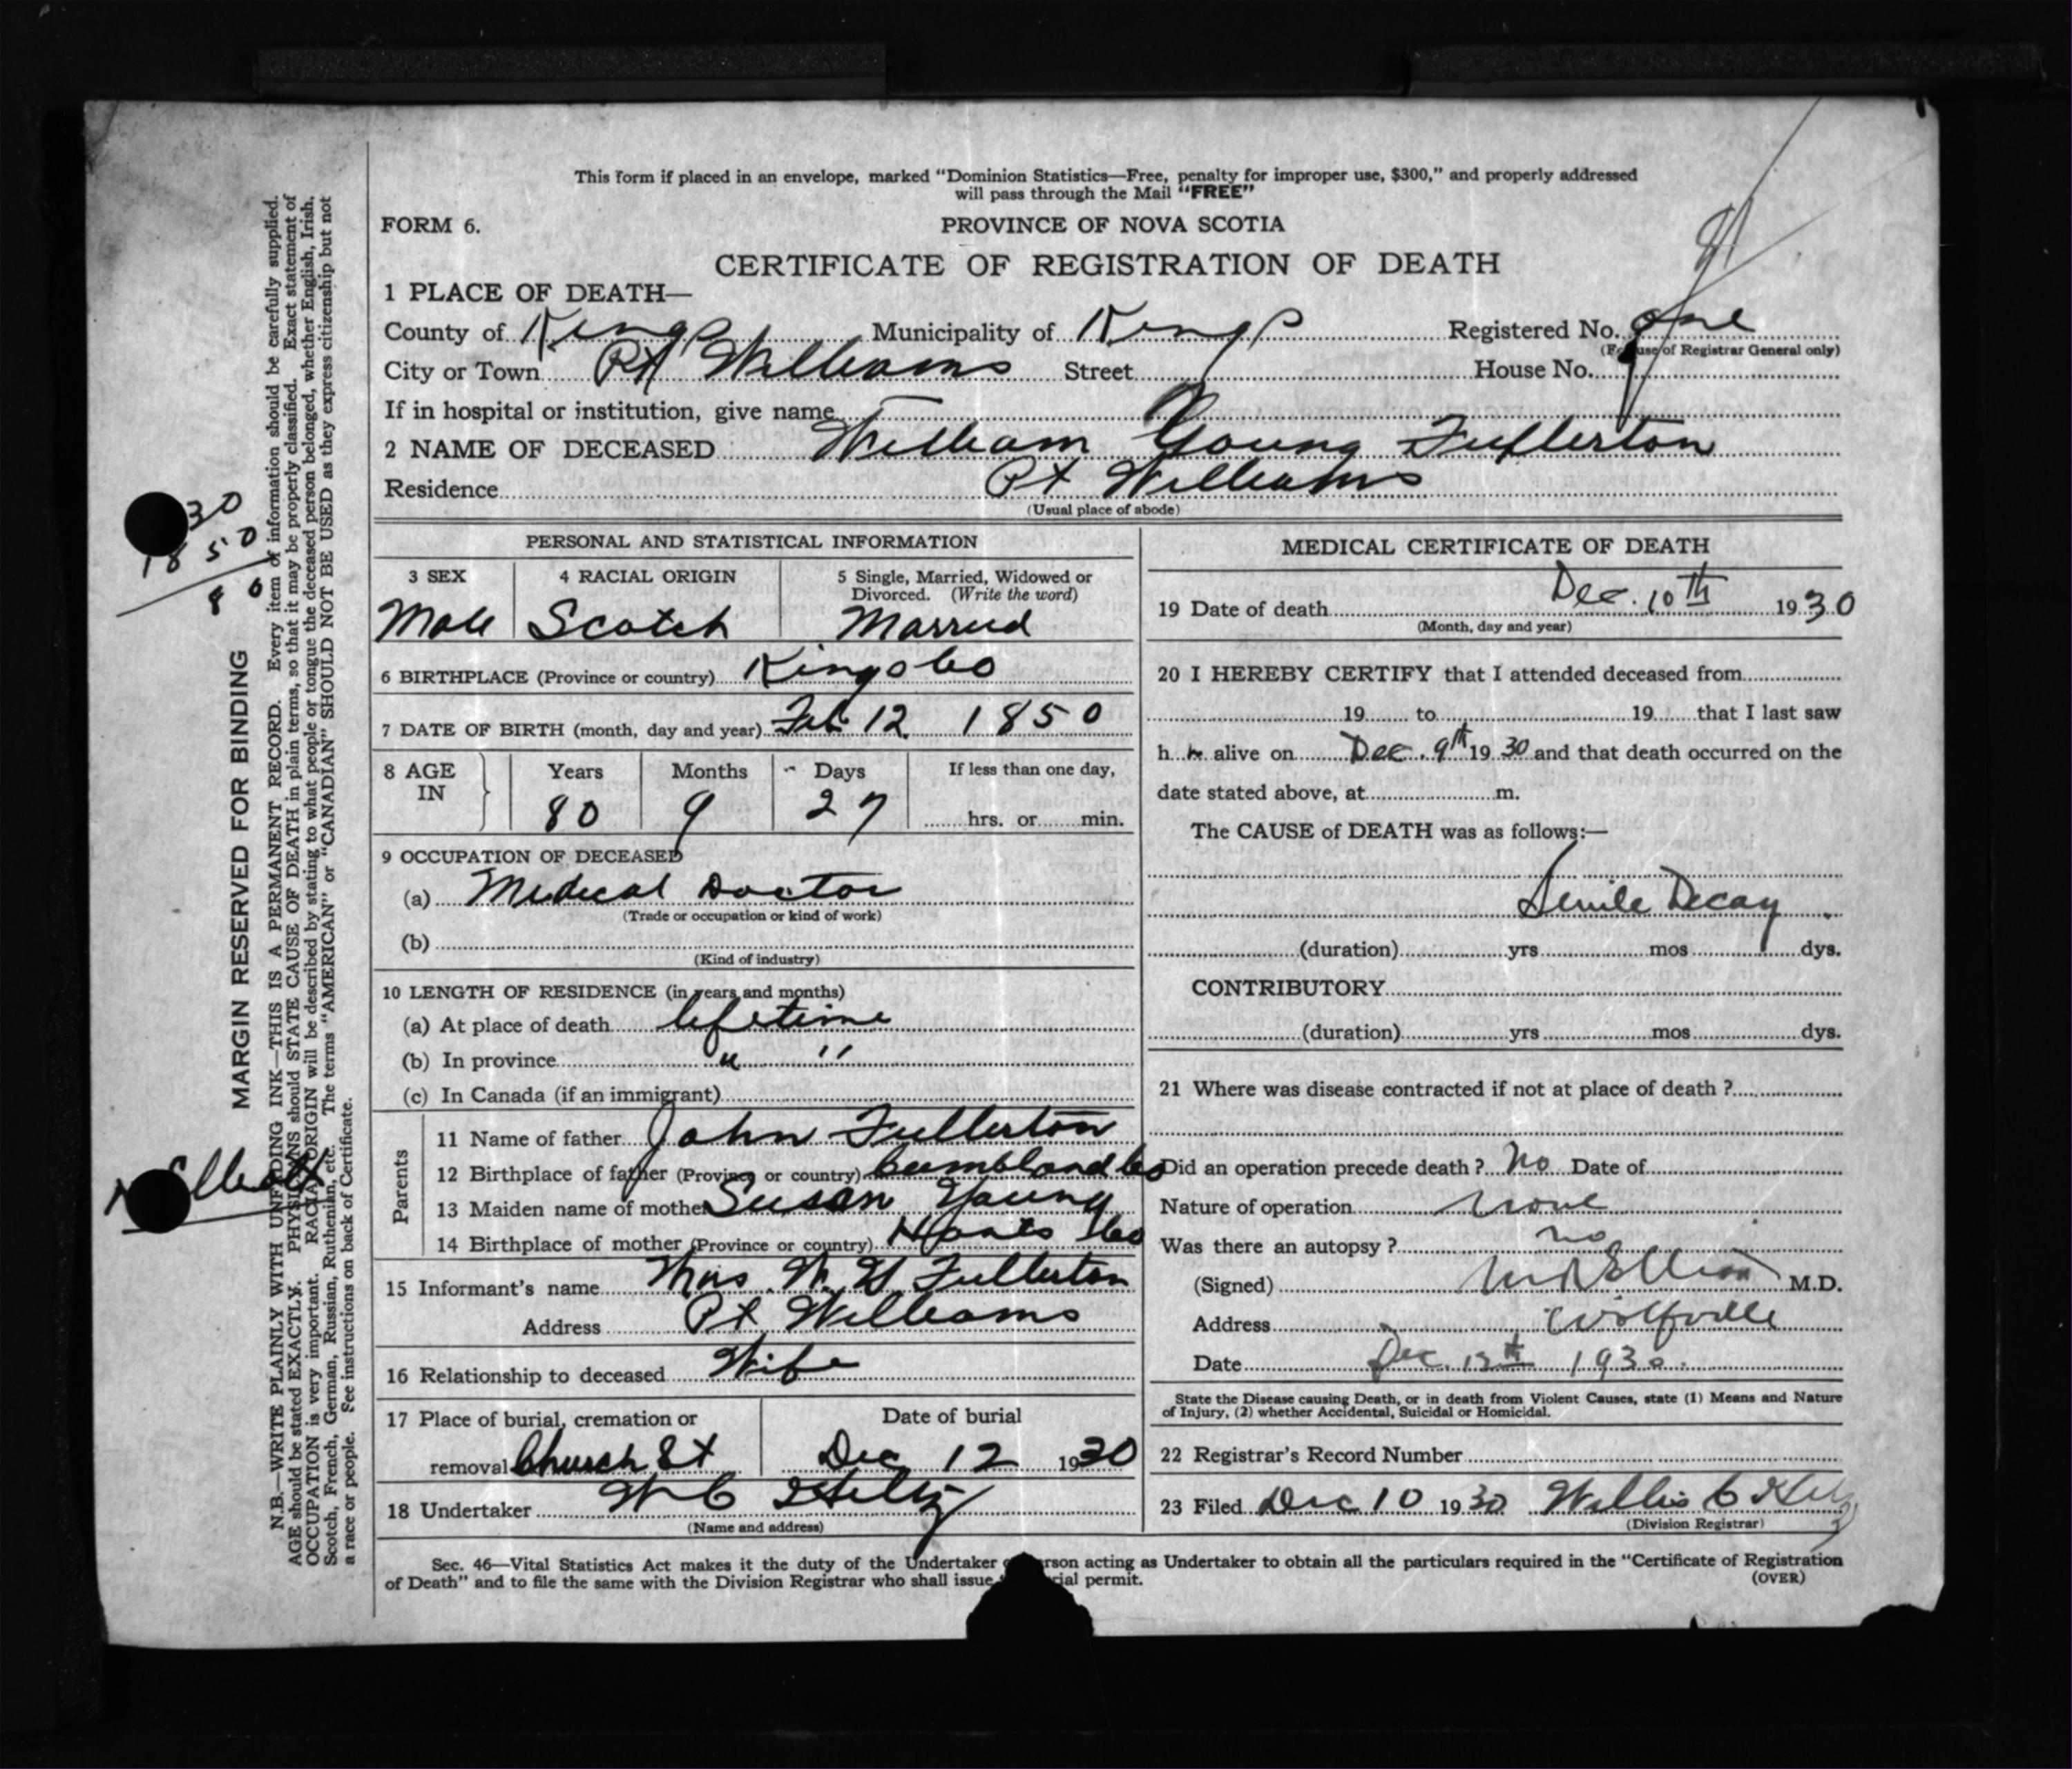 This form if placed in an envelope, marked "Dominion Statistics—Free, penalty for improper use, $300," and properly addressed
will pass through the Mail "FREE"
FORM 6.
PROVINCE OF NOVA SCOTIA
CERTIFICATE OF REGISTRATION OF DEATH
1 PLACE OF DEATH—
County of Kings Municipality of Kings Registered No. one
(For use of Registrar General only)
City or Town Pt Williams Street House No.
If in hospital or institution, give name
2 NAME OF DECEASED William Young Fullerton
Residence Pt Williams
(Usual place of abode)
PERSONAL AND STATISTICAL INFORMATION
3 SEX 4 RACIAL ORIGIN 5 Single, Married, Widowed or
Divorced. (Write the word)
Male Scotch Married
6 BIRTHPLACE (Province or country) Kings Co
7 DATE OF BIRTH (month, day and year) Feb 12 1850
8 AGE IN Years Months Days If less than one day,
80 9 27 hrs. or min.
9 OCCUPATION OF DECEASED
(a) Medical Doctor
(Trade or occupation or kind of work)
(b)
(Kind of industry)
10 LENGTH OF RESIDENCE (in years and months)
(a) At place of death lifetime
(b) In province " "
(c) In Canada (if an immigrant)
Parents
11 Name of father John Fullerton
12 Birthplace of father (Province or country) Cumbland Co
13 Maiden name of mother Susan Young
14 Birthplace of mother (Province or country) Hants Co
15 Informant's name Mrs. W. Y Fullerton
Address Pt Williams
16 Relationship to deceased Wife
17 Place of burial, cremation or Date of burial
removal Church St Dec 12 1930
18 Undertaker W C Hiltz
(Name and address)
MEDICAL CERTIFICATE OF DEATH
19 Date of death Dec. 10th 1930
(Month, day and year)
20 I HEREBY CERTIFY that I attended deceased from
19 to 19 that I last saw
h im alive on Dec. 9th 1930 and that death occurred on the
date stated above, at m.
The CAUSE of DEATH was as follows:—
Senile Decay
(duration) yrs mos dys.
CONTRIBUTORY
(duration) yrs mos dys.
21 Where was disease contracted if not at place of death ?
Did an operation precede death ? No Date of
Nature of operation None
Was there an autopsy ? no
(Signed) Elliott M.D.
Address Wolfville
Date Dec. 12th 1930.
State the Disease causing Death, or in death from Violent Causes, state (1) Means and Nature
of Injury, (2) whether Accidental, Suicidal or Homicidal.
22 Registrar's Record Number
23 Filed Dec 10 1930 Willis C Hiltz
(Division Registrar)
Sec. 46—Vital Statistics Act makes it the duty of the Undertaker or person acting as Undertaker to obtain all the particulars required in the "Certificate of Registration
of Death" and to file the same with the Division Registrar who shall issue burial permit.
(OVER)
MARGIN RESERVED FOR BINDING
N.B.—WRITE PLAINLY WITH UNFADING INK—THIS IS A PERMANENT RECORD. Every item of information should be carefully supplied.
AGE should be stated EXACTLY. PHYSICIANS should STATE CAUSE OF DEATH in plain terms, so that it may be properly classified. Exact statement of
OCCUPATION is very important. RACIAL ORIGIN will be described by stating to what people or tongue the deceased person belonged, whether English, Irish,
Scotch, French, German, Russian, Ruthenian, etc. The terms "AMERICAN" or "CANADIAN" SHOULD NOT BE USED as they express citizenship but not
a race or people. See instructions on back of Certificate.
30
1850
80